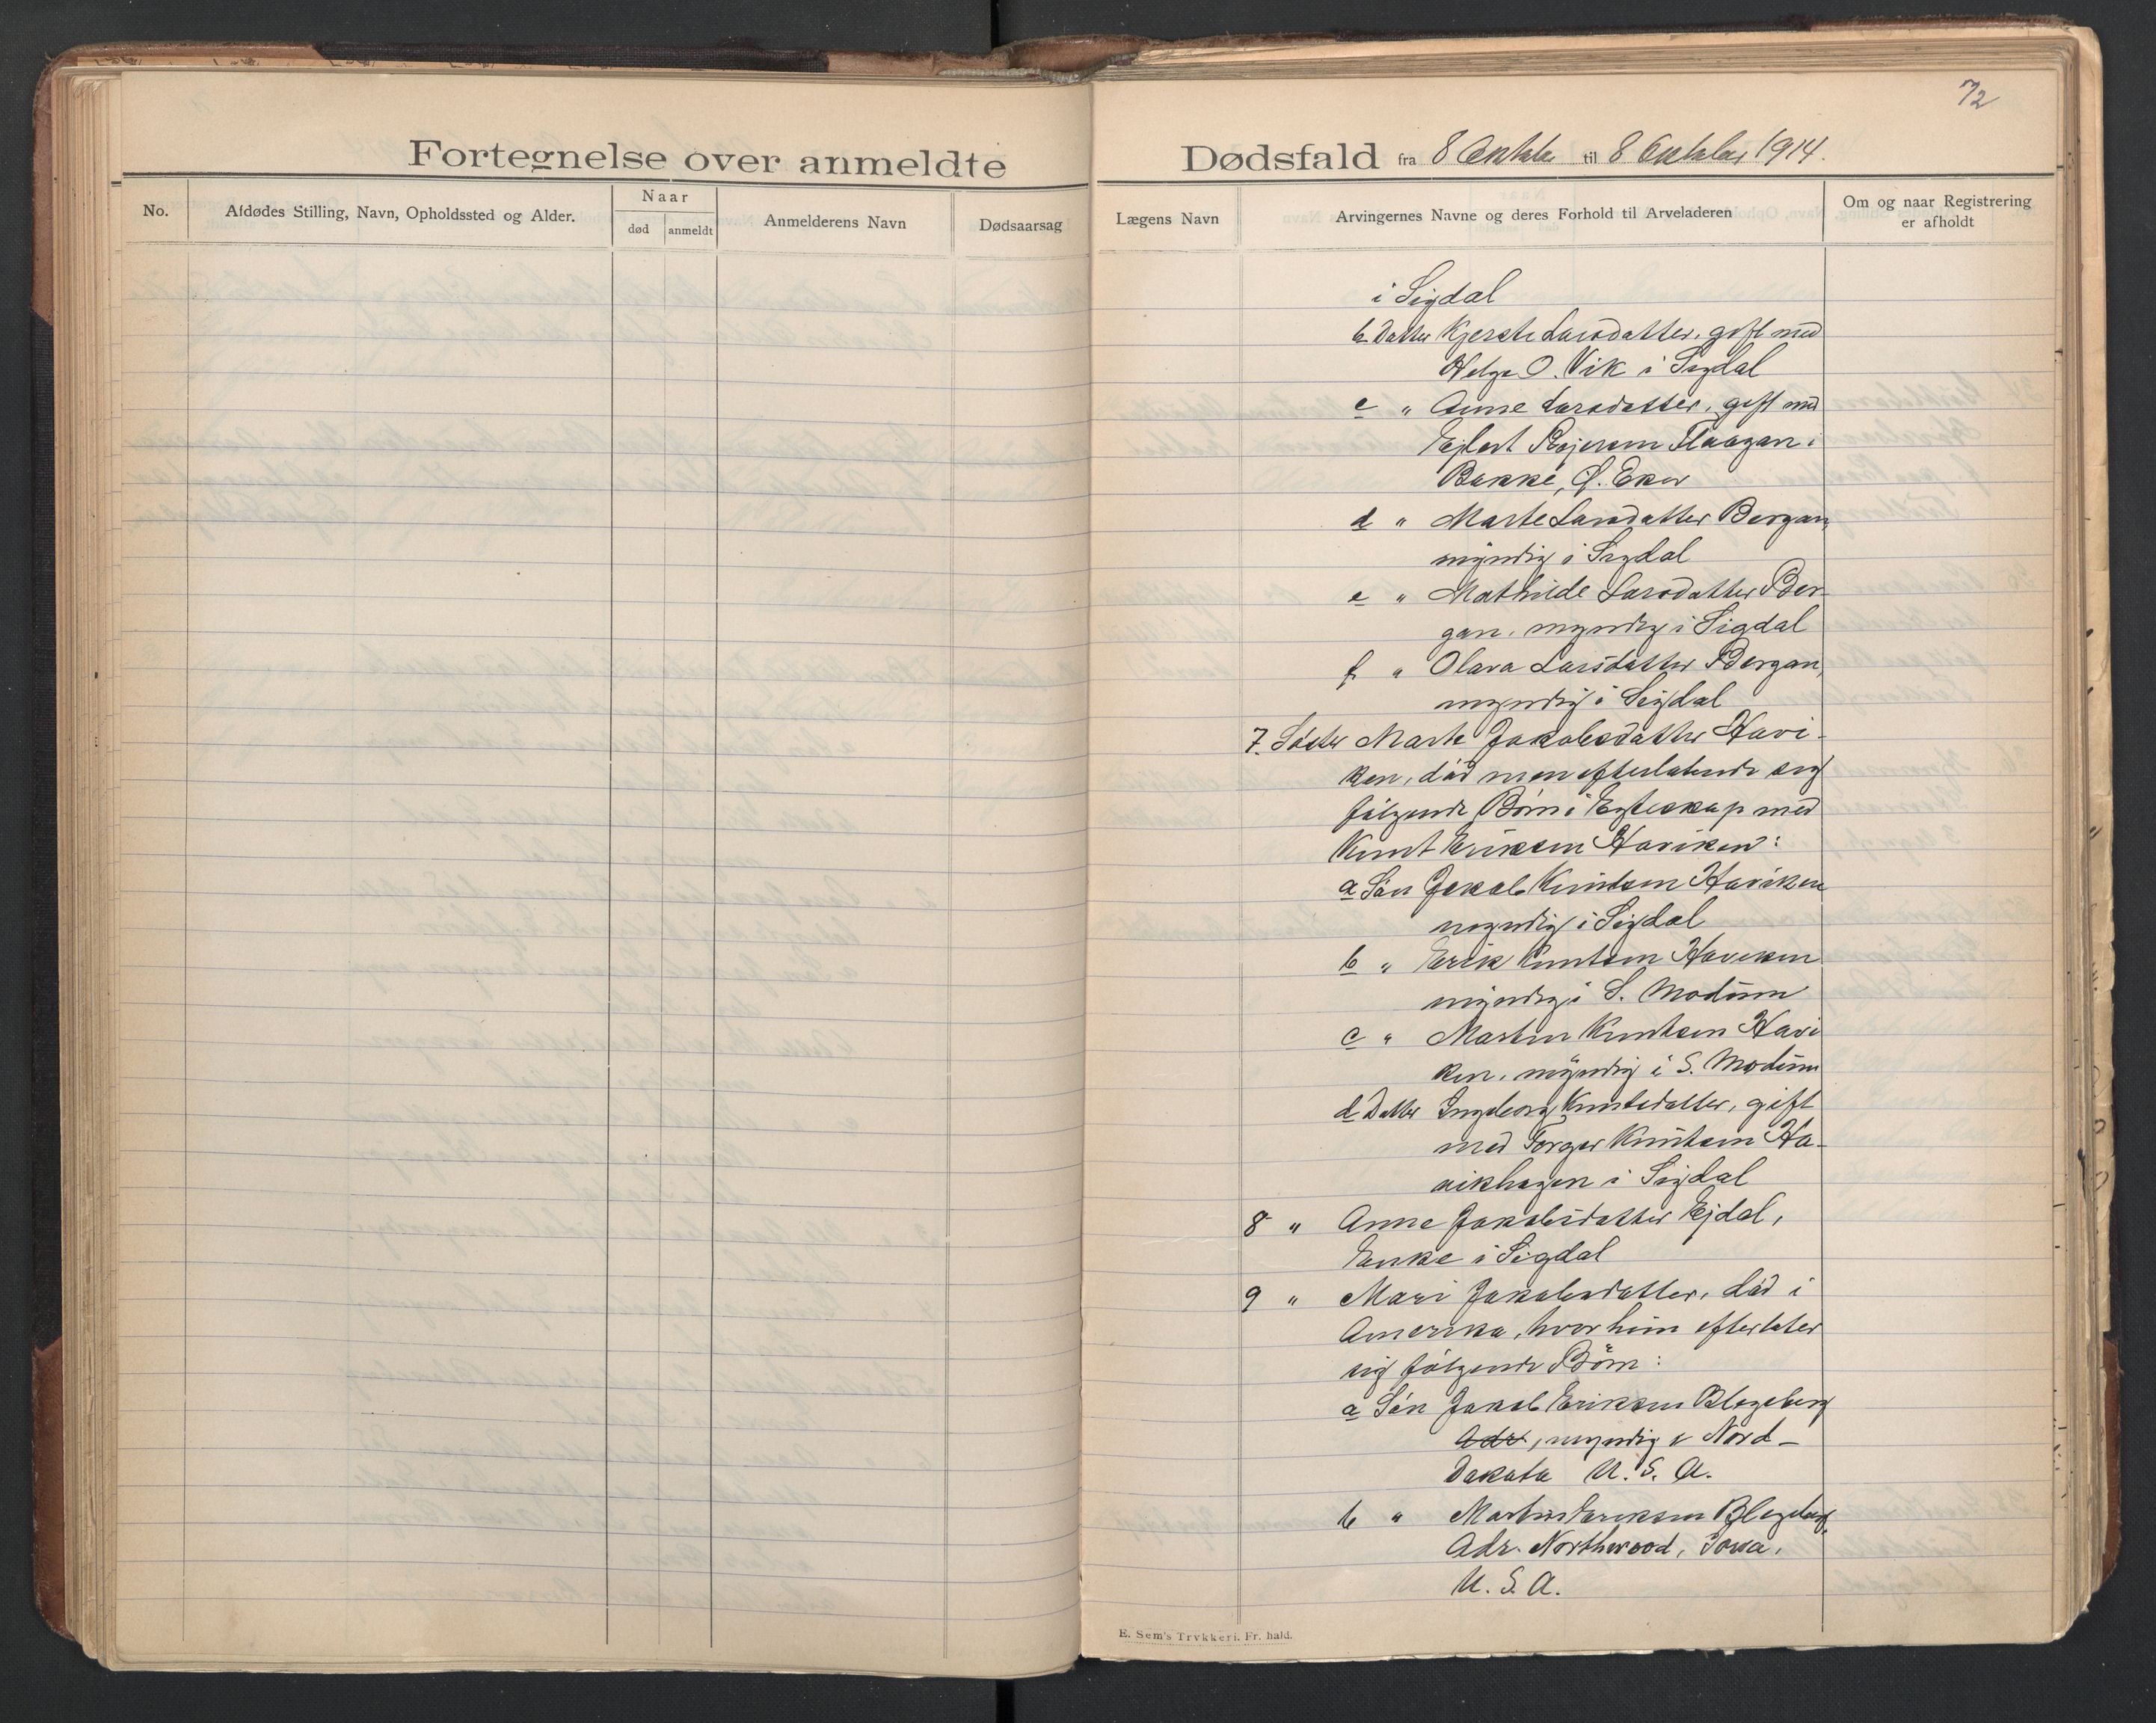 72
Fortegnelse over anmeldte
Dødsfald fra 8 Oktober til 8 Oktober 1914.
No.
Afdødes Stilling, Navn, Opholdssted og Alder.
Naar
død
anmeldt
Anmelderens Navn
Dødsaarsag
Lægens Navn
Arvingernes Navne og deres Forhold til Arveladeren
Om og naar Registrering
er afholdt
i Sigdal
b Datter Kjersti Larsdatter, gift med
Helge O. Vik i Sigdal
c " Anne Larsdatter, gift med
Bakke, Ø. Eker
d " Marte Larsdatter Bergan,
myndig i Sigdal
e " Mathilde Larsdatter Ber-
gan, myndig i Sigdal
f " Olava Larsdatter Bergan,
myndig i Sigdal
7. Søster Marte Jakobsdatter Havi-
ken, død men efterlatende sig
følgende Børn i Egteskap med
Knut Eriksen Haviken:
a Søn Jakob Knutsen Haviken
myndig i Sigdal
b " Erik Knutsen Haviken
myndig i S. Modum
c " Martin Knutsen Havi
ken, myndig i S. Modum
d Datter Ingeborg Knutsdatter, gift
med Torger Knutsen Ha-
vikhagen i Sigdal
8 " Anne Jakobsdatter Ejdal,
Enke i Sigdal
9 " Mari Jakobsdatter, død i
Amerika, hvor hun efterlater
sig følgende Børn:
a Søn Jakob Eriksen Blegeberg
Adr, myndig i Nord-
Dakota U. S. A.
b " Martin Eriksen Blegeberg,
Adr. Northwood, Iowa,
U. S. A.
E. Sem's Trykkeri. Fr. hald.